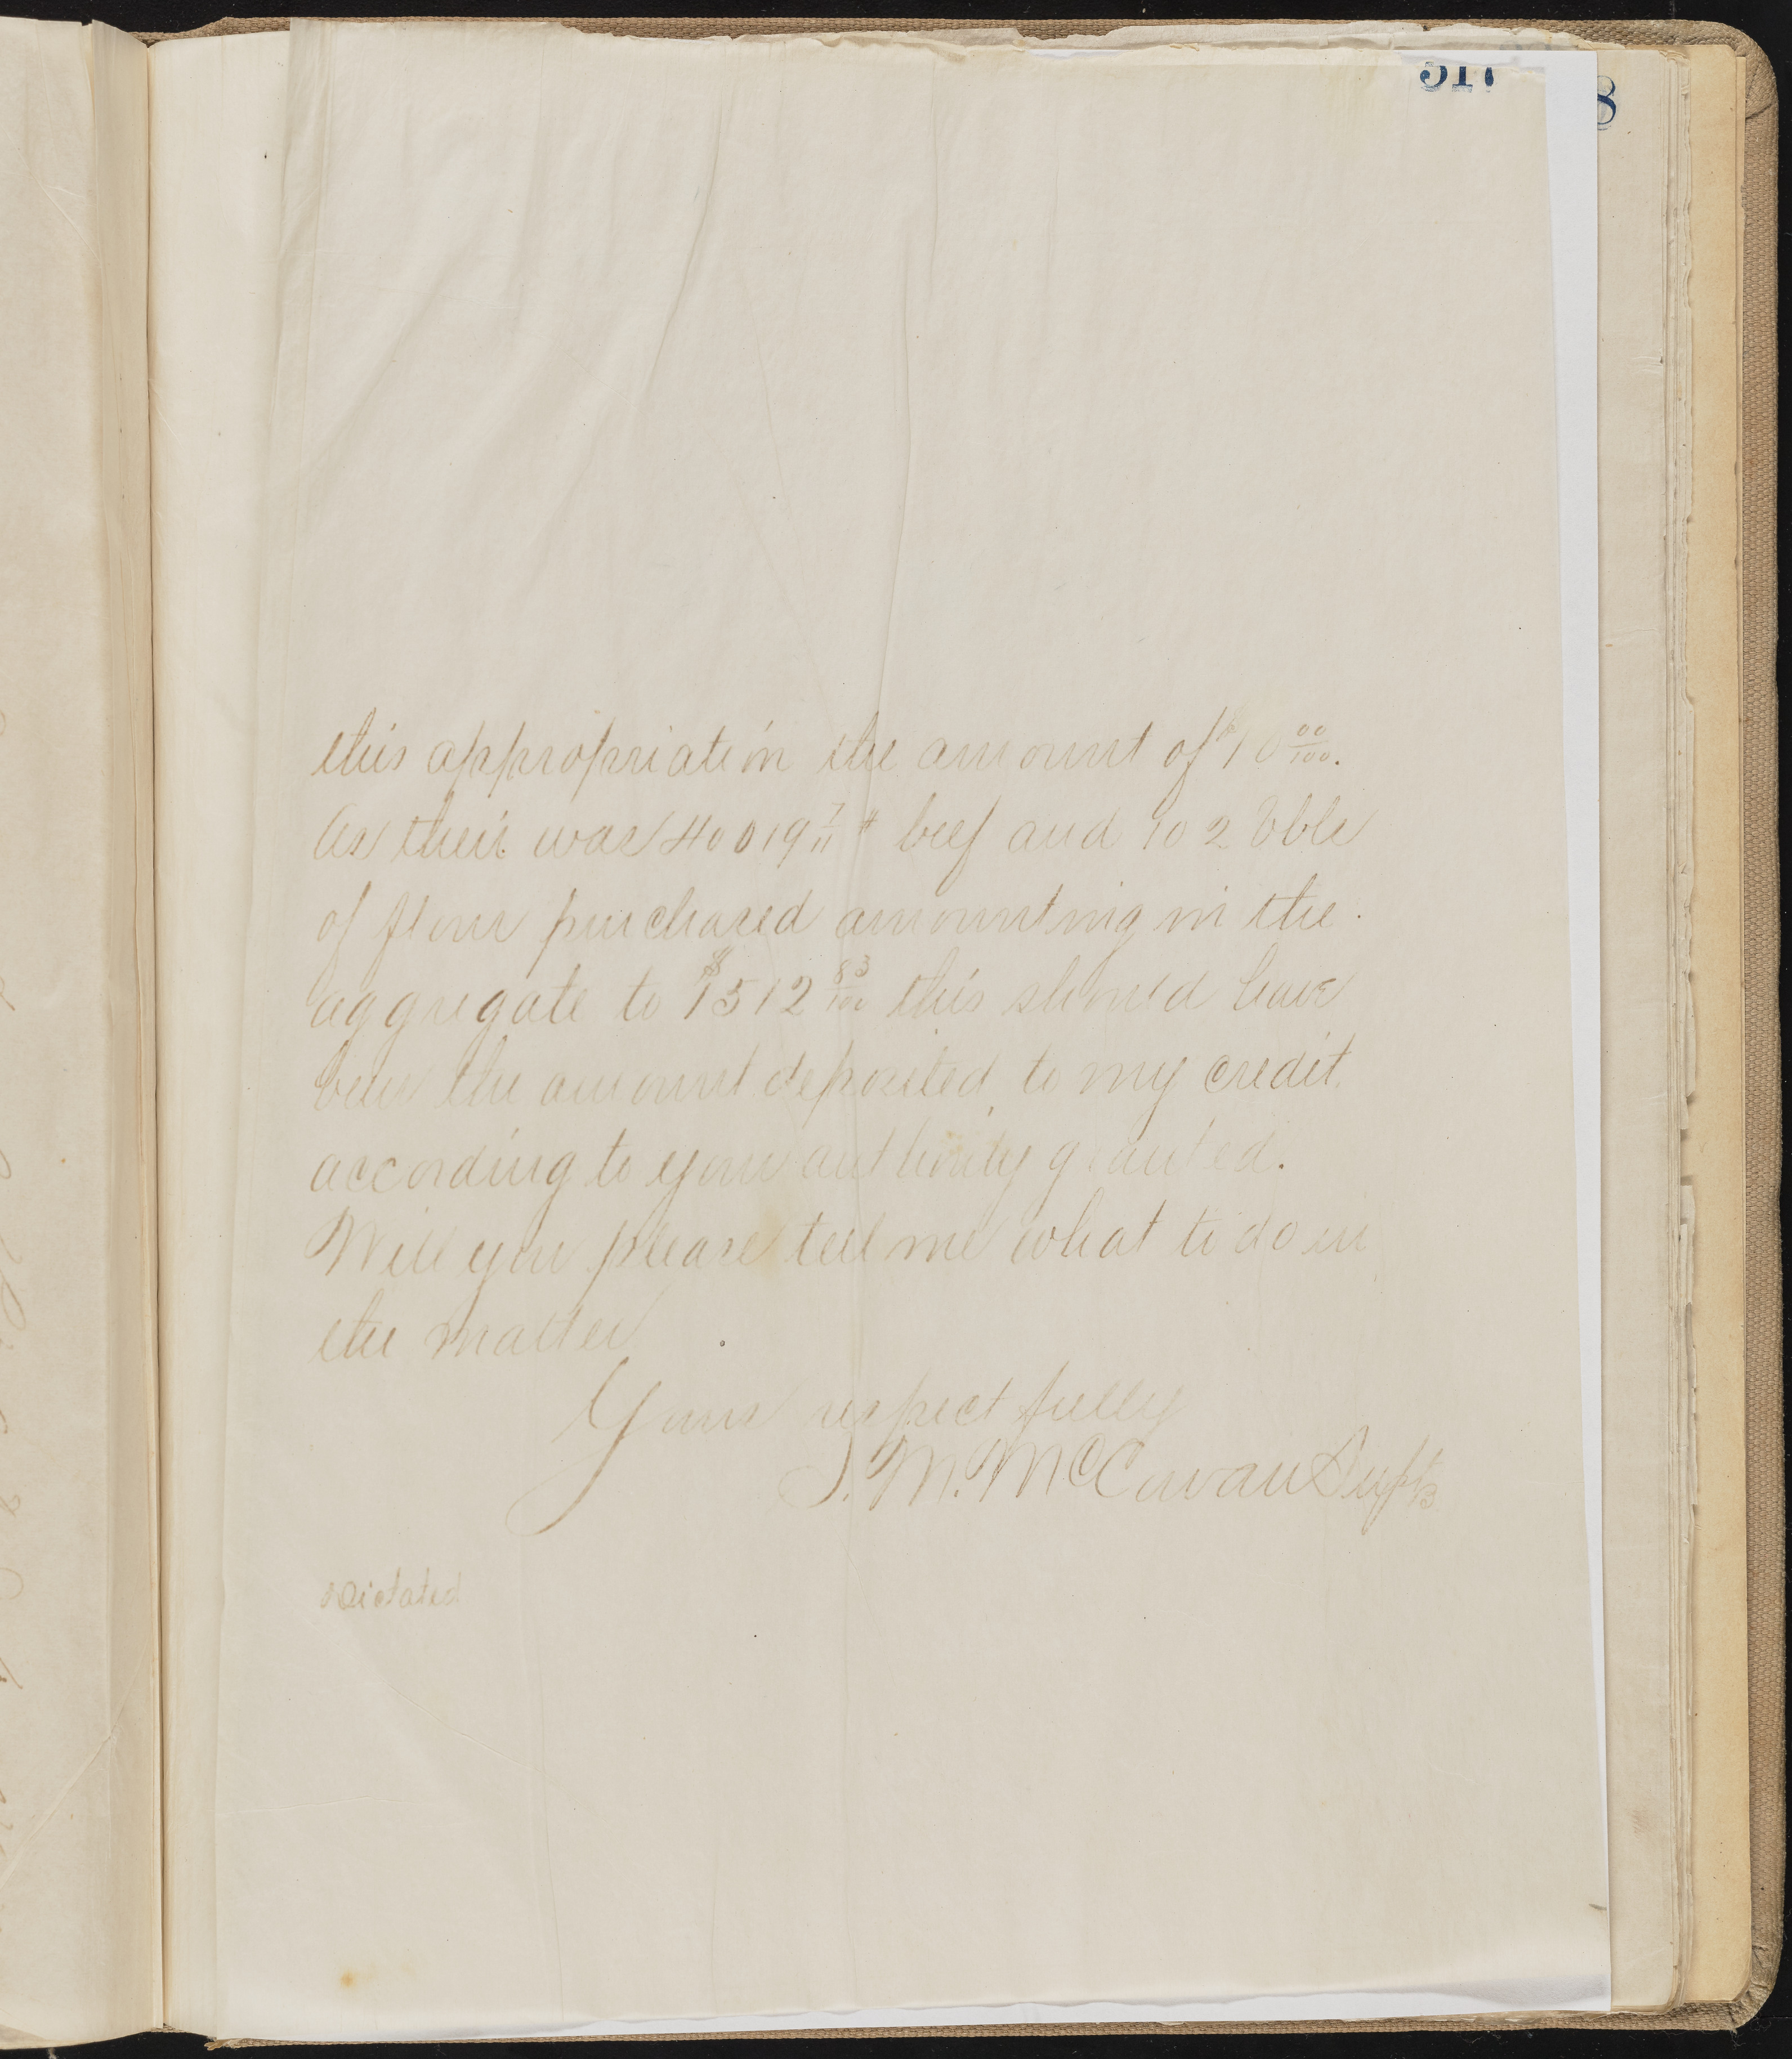 317
8
this appropriation the amount of $10 00/100.
As their was 40019 7/11 # beef and 102 bble
of flour purchased amounting in the
aggregate to $1512 83/100 this should have
been the amount deposited to my credit
according to your authority granted.
Will you please tell me what to do in
the matter
Yours respectfully
J. M. McCavan Supt
Dictated